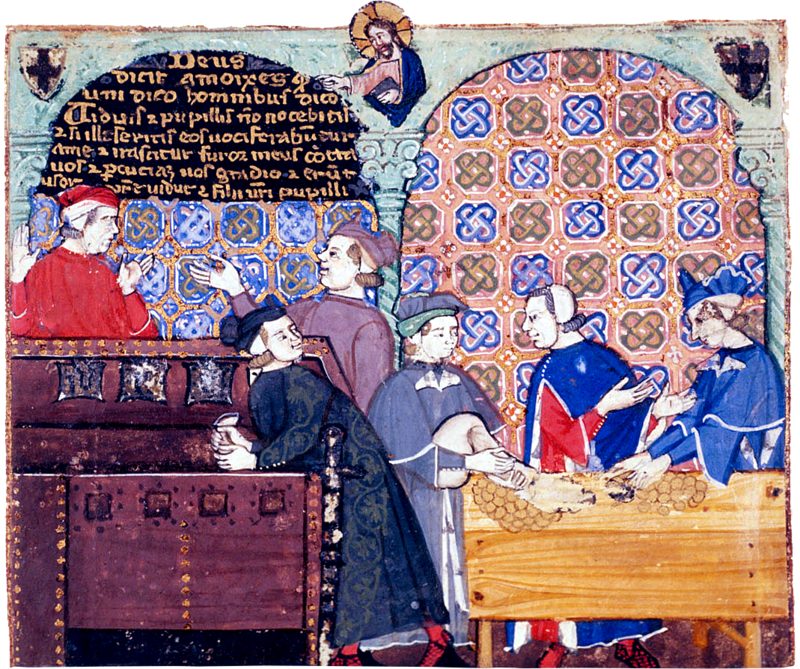 Deus
dicit a moixes q
uni dico hominibus dico
Si viduis & pupillis nō nocebitis
& si lleseritis eos vociferabūtur
ame & irascitur furor meus cōtra
vos & percuciaz vos gladio & erūt
vidue & filii vr̄i pupilli